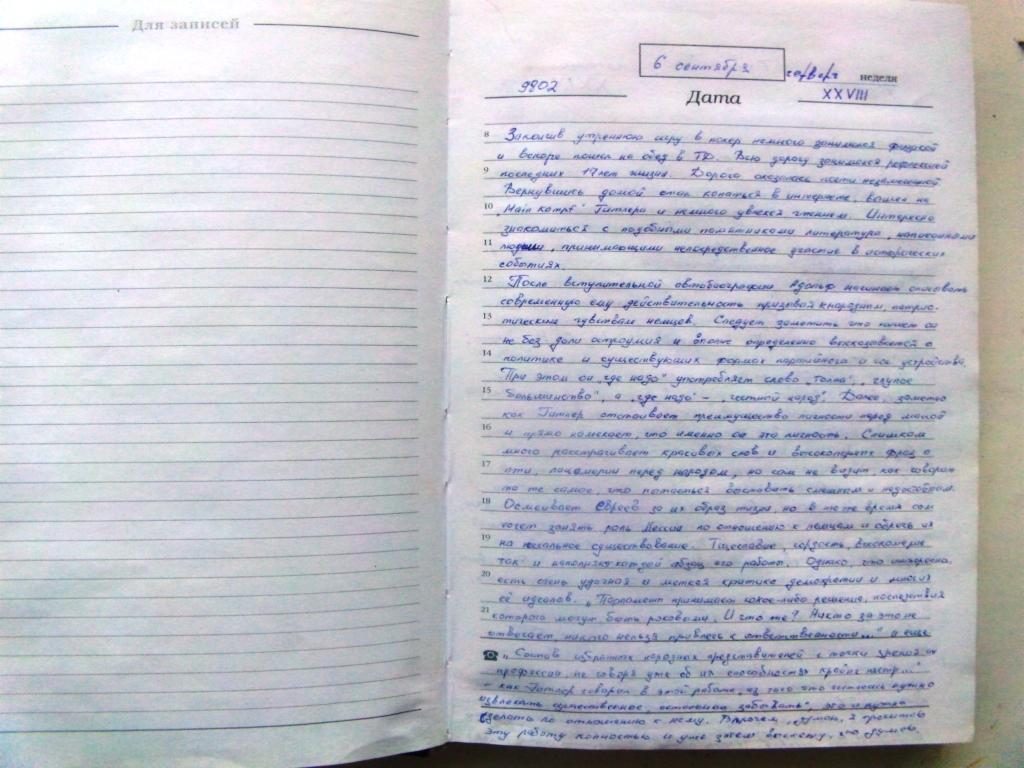 Для записей
6 сентября
четверг неделя
9802 Дата XXVIII
8 Закончив утреннюю игру в покер немного занимался физикой
и вскоре пошел на обед в ТФ. Всю дорогу занимался рефлексией
9 последних 19 лет жизни. Дорога оказалась почти незаметной
Вернувшись домой стал копаться в интернете, вышел на
10 "Main Kampf" Гитлера и немного увлекся чтением. Интересно
знакомиться с подобными памятниками литературы, написанными
11 людьми, принимающими непосредственное участие в исторических
событиях.
12 После вступительной автобиографии Адольф начинает описывать
современную ему действительность призывая к народным, патрио-
13 тическим чувствам немцев. Следует заметить что пишет он
не без доли остроумия и вполне определенно высказывается о
14 политике и существующих формах партийного и гос. устройства.
При этом он "где надо" употребляет слово "толпа", "глупое
15 большинство", а "где надо" - "честной народ". Далее, заметно
как Гитлер отстаивает преимущество личности перед массой
16 и прямо намекает, что именно он эта личность. Слишком
много растрачивает красивых слов и высокопарных фраз о
17 лицемерии перед народом, но сам не видит, как говорит
то же самое, что пытается выставить смешным и недостойным.
18 Осмеивает Евреев за их образ жизни, но в то же время сам
хочет занять роль Мессии по отношению к немцам и обречь их
19 на существование. Тщеславие, гордость, высокомерие
так и наполняют каждый абзац его работы. Однако, что интересно
20 есть очень удачная и меткая критика демократии и многих
её идеалов. "Парламент принимает какое-либо решение, последствия
21 которого могут быть роковыми. И что же? Никто за это не
отвечает, никого нельзя привлечь к ответственности..." и еще
"Состав избранных народных представителей с точки зрения их
профессии, не говоря уже об их способностях крайне пестрый"
- как Гитлер говорил в этой работе, "из того что читаешь нужно
извлекать существенное, остальное забывать", это и нужно
сделать по отношению к нему. Впрочем, думаю, я прочитаю
эту работу полностью и уже затем выскажу, что думаю.